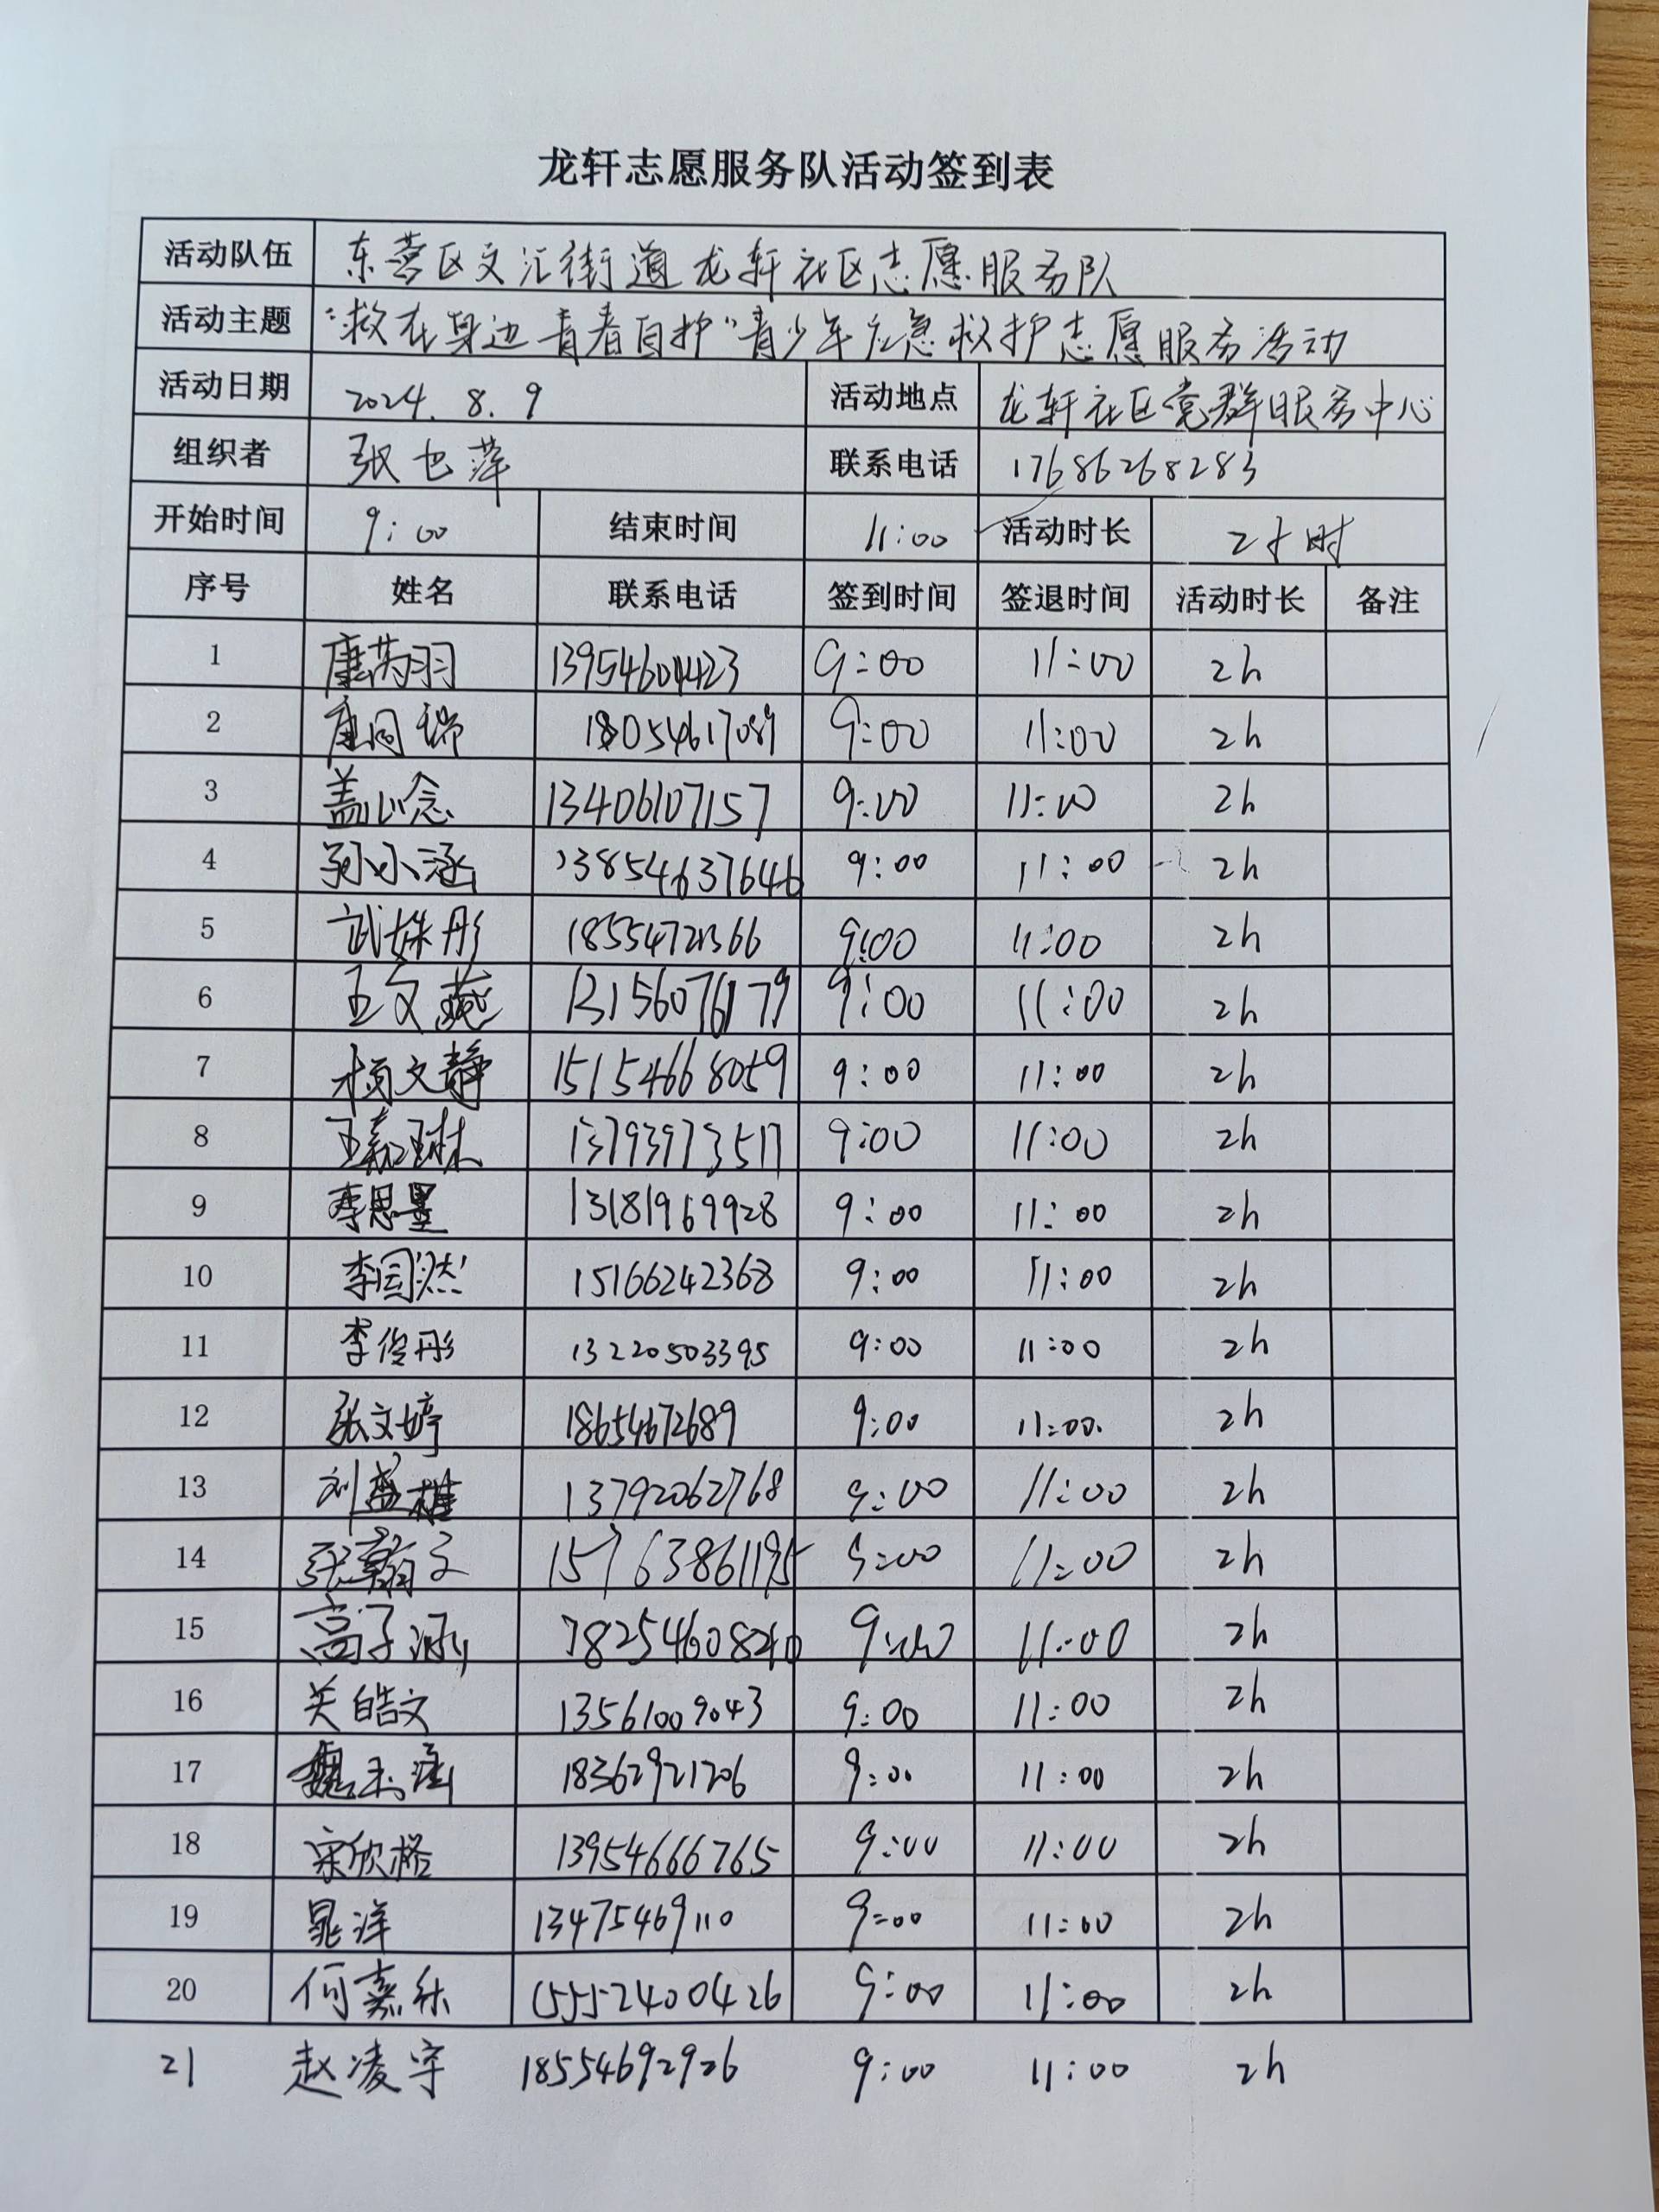 龙轩志愿服务队活动签到表
活动队伍 东营区文汇街道龙轩社区志愿服务队
活动主题 “救在身边 青春自护”青少年应急救护志愿服务活动
活动日期 2024.8.9 活动地点 龙轩社区党群服务中心
组织者 张也萍 联系电话 17686268283
开始时间 9:00 结束时间 11:00 活动时长 2小时
序号 姓名 联系电话 签到时间 签退时间 活动时长 备注
1 13954604423 9:00 11:00 2h
2 18054617089 9:00 11:00 2h
3 盖心念 13406107157 9:00 11:00 2h
4 13854637646 9:00 11:00 2h
5 武姝彤 9:00 11:00 2h
6 王文燕 13156076179 9:00 11:00 2h
7 杨文静 15154668059 9:00 11:00 2h
8 王嘉琳 13793973517 9:00 11:00 2h
9 李思墨 13181969928 9:00 11:00 2h
10 15166242368 9:00 11:00 2h
11 李俊彤 13220503395 9:00 11:00 2h
12 张文婷 18654672689 9:00 11:00. 2h
13 13792062768 9:00 11:00 2h
14 张翰文 15763861195 9:00 11:00 2h
15 高子涵 9:00 11:00 2h
16 关皓文 13561009043 9:00 11:00 2h
17 18362921206 9:00 11:00 2h
18 宋欣格 13954666765 9:00 11:00 2h
19 晁洋 13475469110 9:00 11:00 2h
20 何嘉乐 15552400426 9:00 11:00 2h
21 赵凌宇 18554692926 9:00 11:00 2h